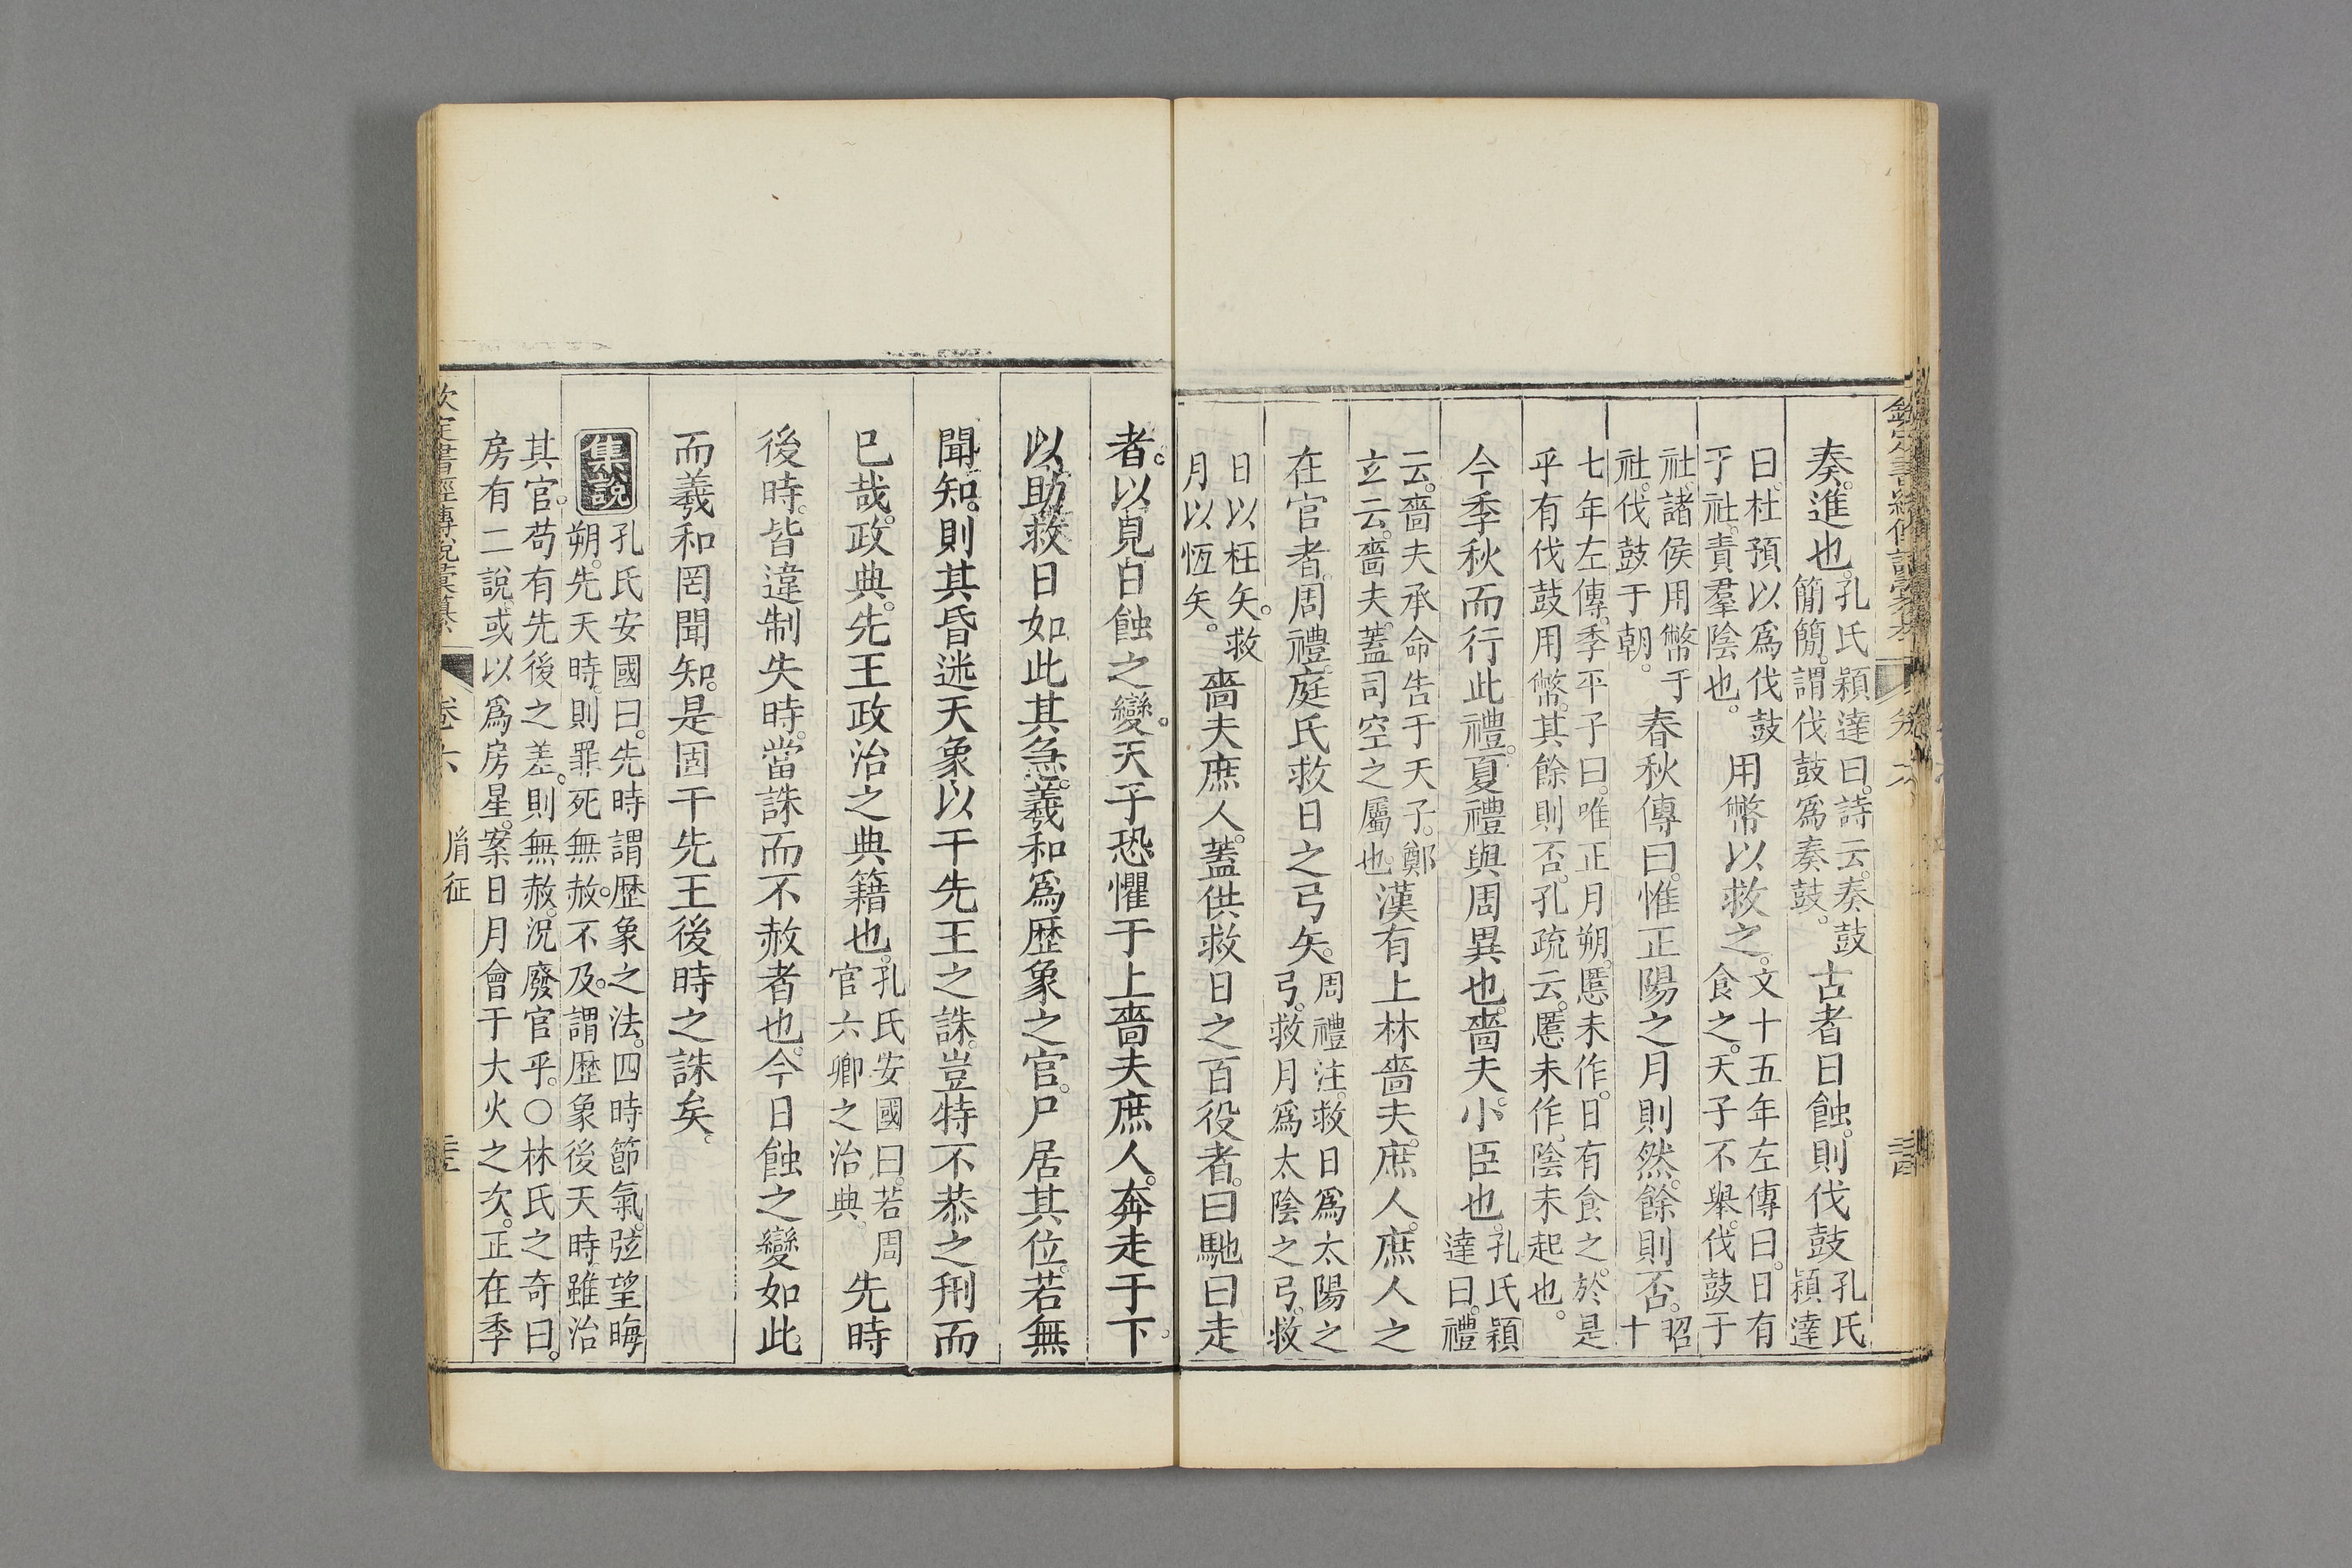 欽定書經傳說彙纂 卷六
奏。進也。孔氏穎達曰。詩云。奏鼓
簡簡。謂伐鼓爲奏鼓。古者日蝕。則伐鼓孔氏
穎達
曰。杜預以爲伐鼓
于社。責羣陰也。用幣以救之。文十五年左傳曰。日有
食之。天子不舉。伐鼓于
社。諸侯用幣于
社。伐鼓于朝。春秋傳曰。惟正陽之月則然。餘則否。昭
十
七年左傳。季平子曰。唯正月朔。慝未作。日有食之。於是
乎有伐鼓用幣。其餘則否。孔疏云。慝未作。陰未起也。
今季秋而行此禮。夏禮與周異也。嗇夫。小臣也。孔氏穎
達曰。禮
云。嗇夫承命告于天子。鄭
玄云。嗇夫。蓋司空之屬也。漢有上林嗇夫。庶人。庶人之
在官者。周禮。庭氏救日之弓矢。周禮注。救日爲太陽之
弓。救月爲太陰之弓。救
日以枉矢。救
月以恆矢。嗇夫庶人。蓋供救日之百役者。曰馳曰走
者。以見日蝕之變。天子恐懼于上。嗇夫庶人。奔走于下。
以助救日如此其急。羲和爲歷象之官。尸居其位。若無
聞知。則其昏迷天象。以干先王之誅。豈特不恭之刑而
已哉。政典。先王政治之典籍也。孔氏安國曰。若周
官六卿之治典。先時
後時。皆違制失時。當誅而不赦者也。今日蝕之變如此。
而羲和罔聞知。是固干先王後時之誅矣。
集說 孔氏安國曰。先時謂歷象之法。四時節氣。弦望晦
朔。先天時。則罪死無赦。不及。謂歷象後天時。雖治
其官。苟有先後之差。則無赦。況廢官乎。○林氏之奇曰。
房有二說。或以爲房星。案日月會于大火之次。正在季
欽定書經傳說彙纂 卷六 胤征